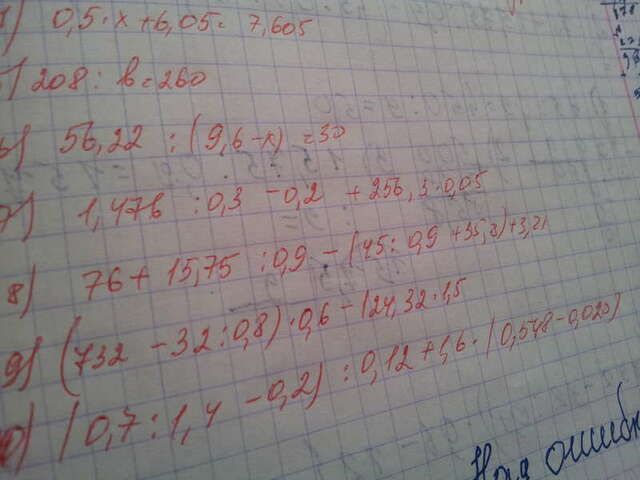 0,5 · x + 6,05 = 7,605
208 : b = 260
56,22 : (9,6 - x) = 30
7) 1,476 : 0,3 - 0,2 + 256,3 · 0,05
8) 76 + 15,75 : 0,9 - (45 : 0,9 + 35,2) + 3,21
9) (732 - 32 : 0,8) · 0,6 - (24,32 · 1,5
0) (0,7 : 1,4 - 0,2) : 0,12 + 1,6 · (0,548 - 0,020)
Над ошибк